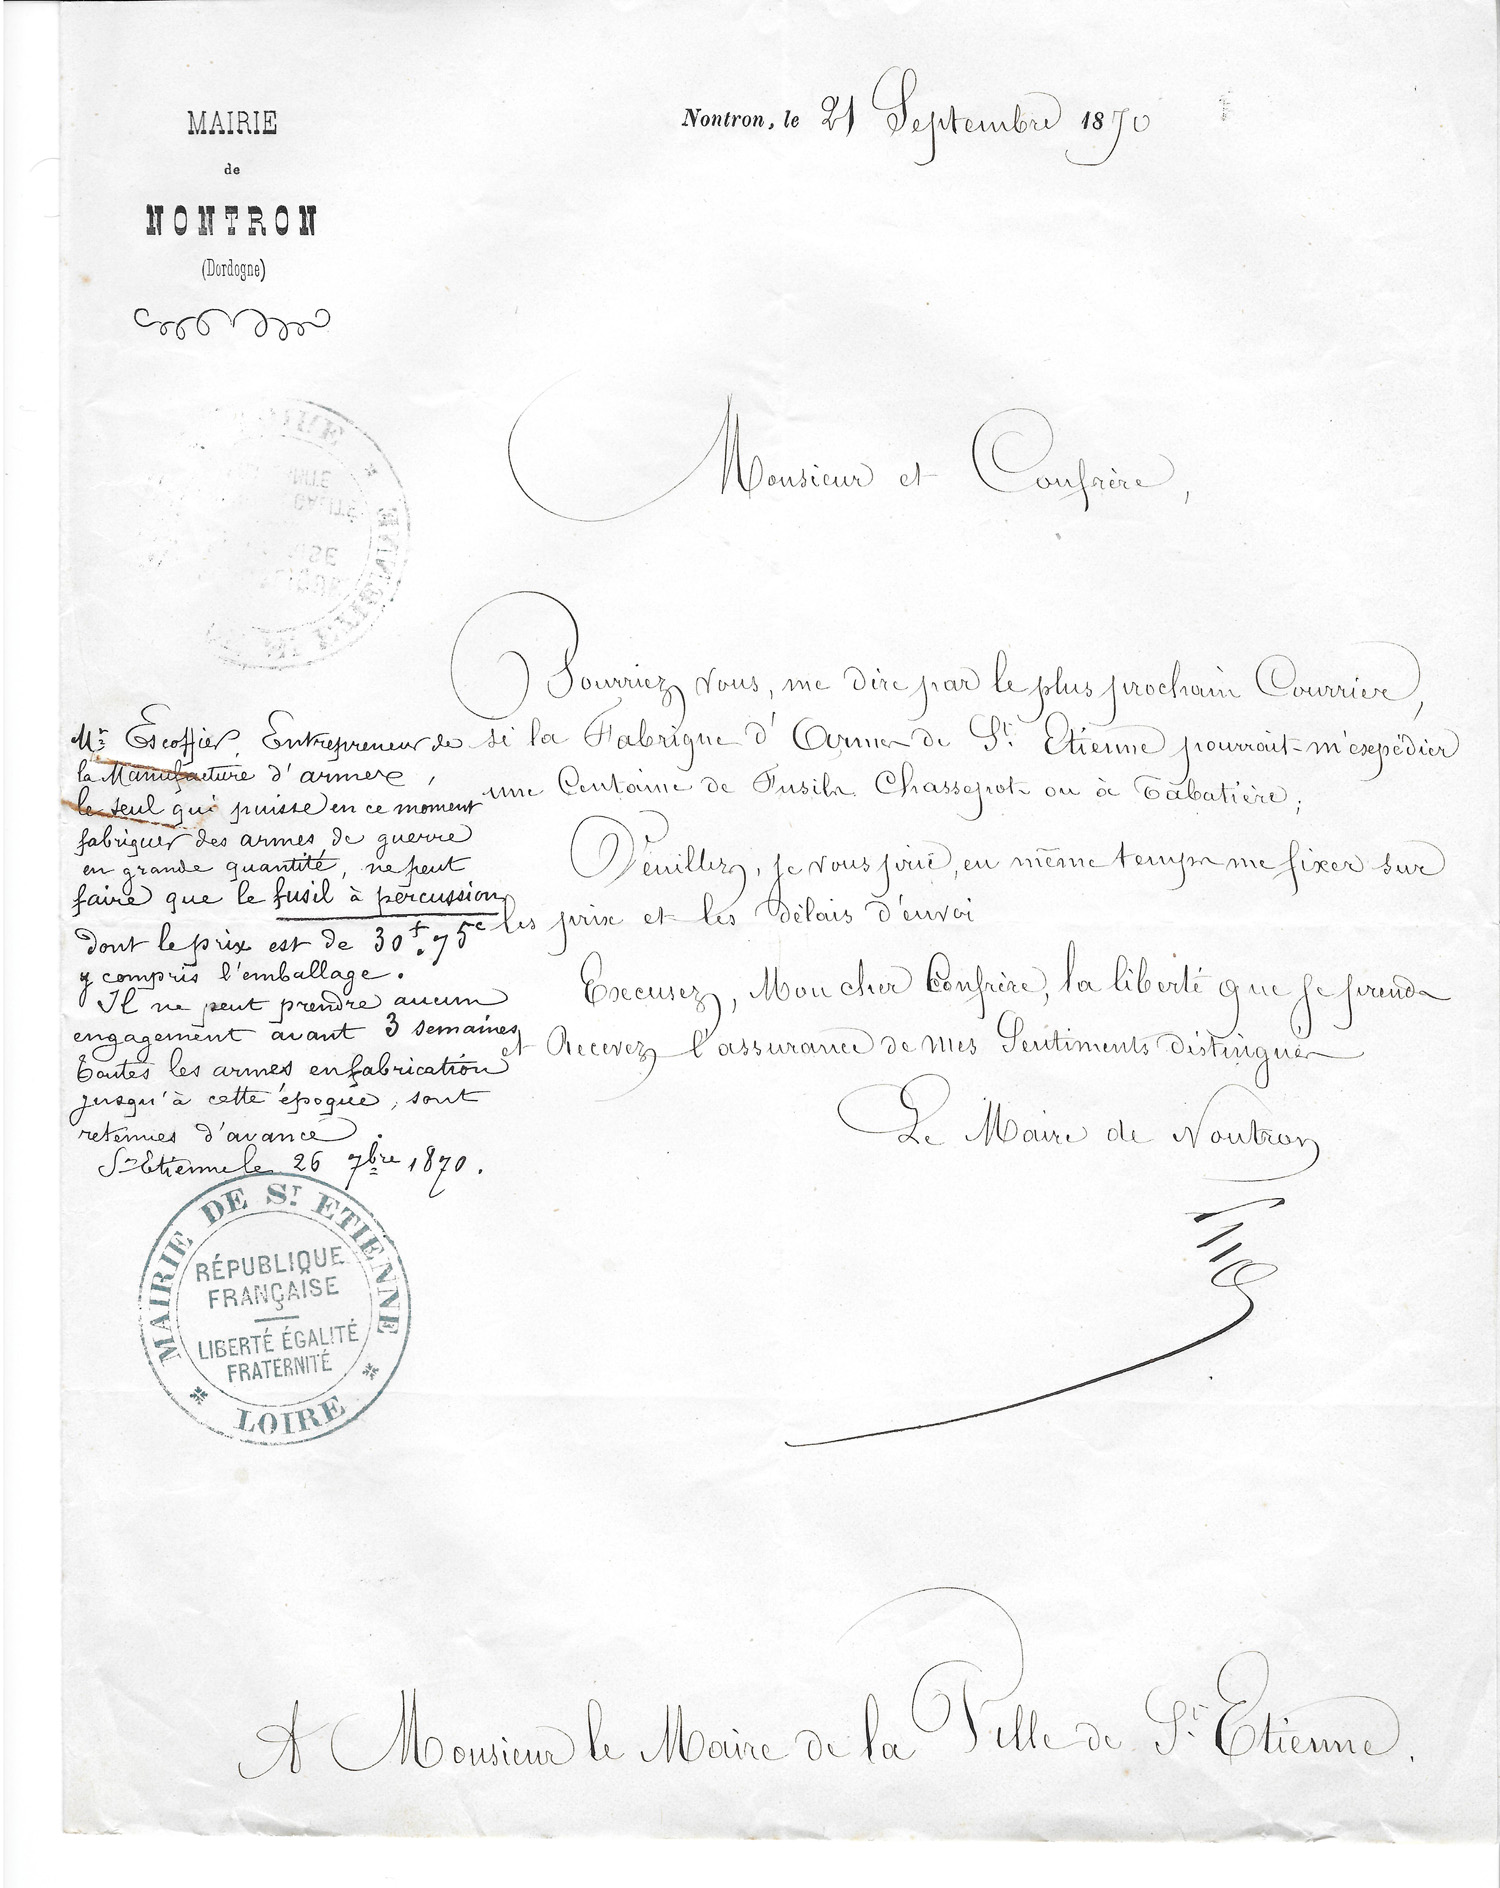 MAIRIE
de
NONTRON
(Dordogne)
Nontron, le 21 Septembre 1870
Monsieur et Confrère,
Pourriez vous, me dire par le plus prochain Courrier,
si la Fabrique d'Armes de St. Etienne pourrait m'expédier
une Centaine de Fusils Chassepots ou à Tabatière;
Veuillez, je vous prie, en même temps me fixer sur
les prix et les Délais d'envoi
Excusez, Mon cher Confrère, la liberté que je prends
et Recevez l'assurance de mes Sentiments distingués
Le Maire de Nontron
Mr. Escoffier, Entrepreneur de
la Manufacture d'armes,
le seul qui puisse en ce moment
fabriquer des armes de guerre
en grande quantité, ne peut
faire que le fusil à percussion
dont le prix est de 30f.75c
y compris l'emballage.
Il ne peut prendre aucun
engagement avant 3 semaines
Toutes les armes en fabrication
jusqu'à cette époque, sont
retenues d'avance.
St Etienne le 26 7bre 1870.
MAIRIE DE ST ETIENNE
RÉPUBLIQUE
FRANÇAISE
LIBERTÉ ÉGALITÉ
FRATERNITÉ
LOIRE
A Monsieur le Maire de la Ville de St. Etienne.